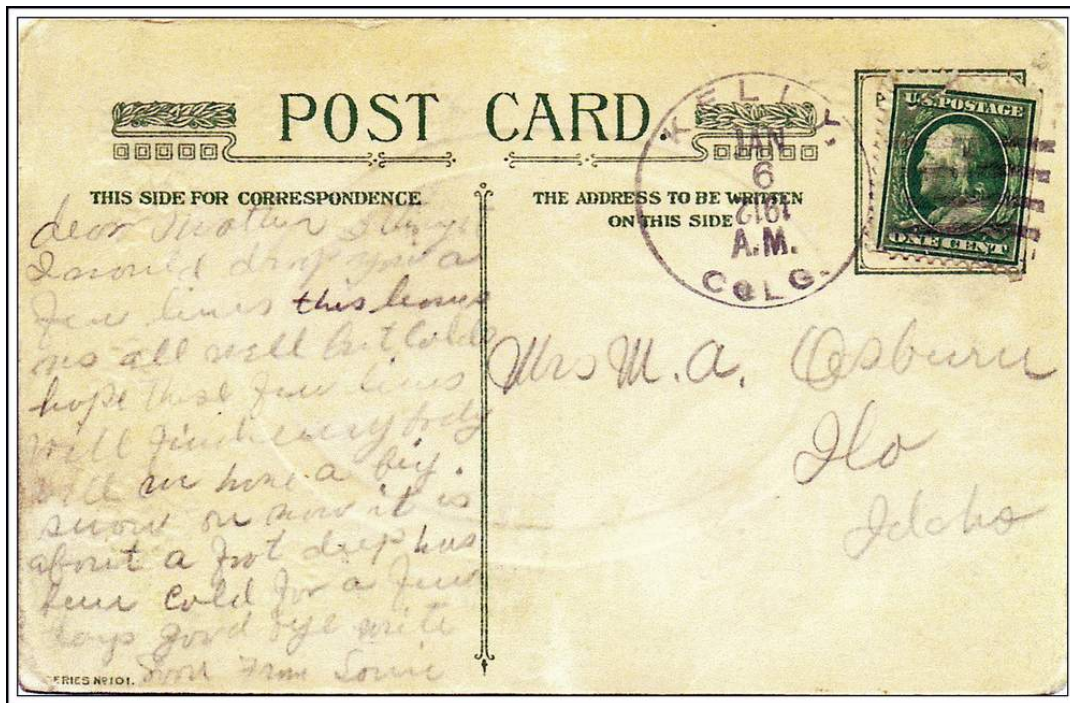 POST CARD.
THIS SIDE FOR CORRESPONDENCE
THE ADDRESS TO BE WRITTEN
ON THIS SIDE
KELLY
JAN
6
1912
A.M.
COLO.
U.S. POSTAGE
ONE CENT
dear Mother I
I would drop you a
few lines this leaves
us all well but cold
hope these few lines
will find every body
well we have a big
snow on now it is
about a foot deep has
been cold for a few
days good bye write
soon From
Mrs M. A. Osburn
Ilo
Idaho
SERIES No 101.